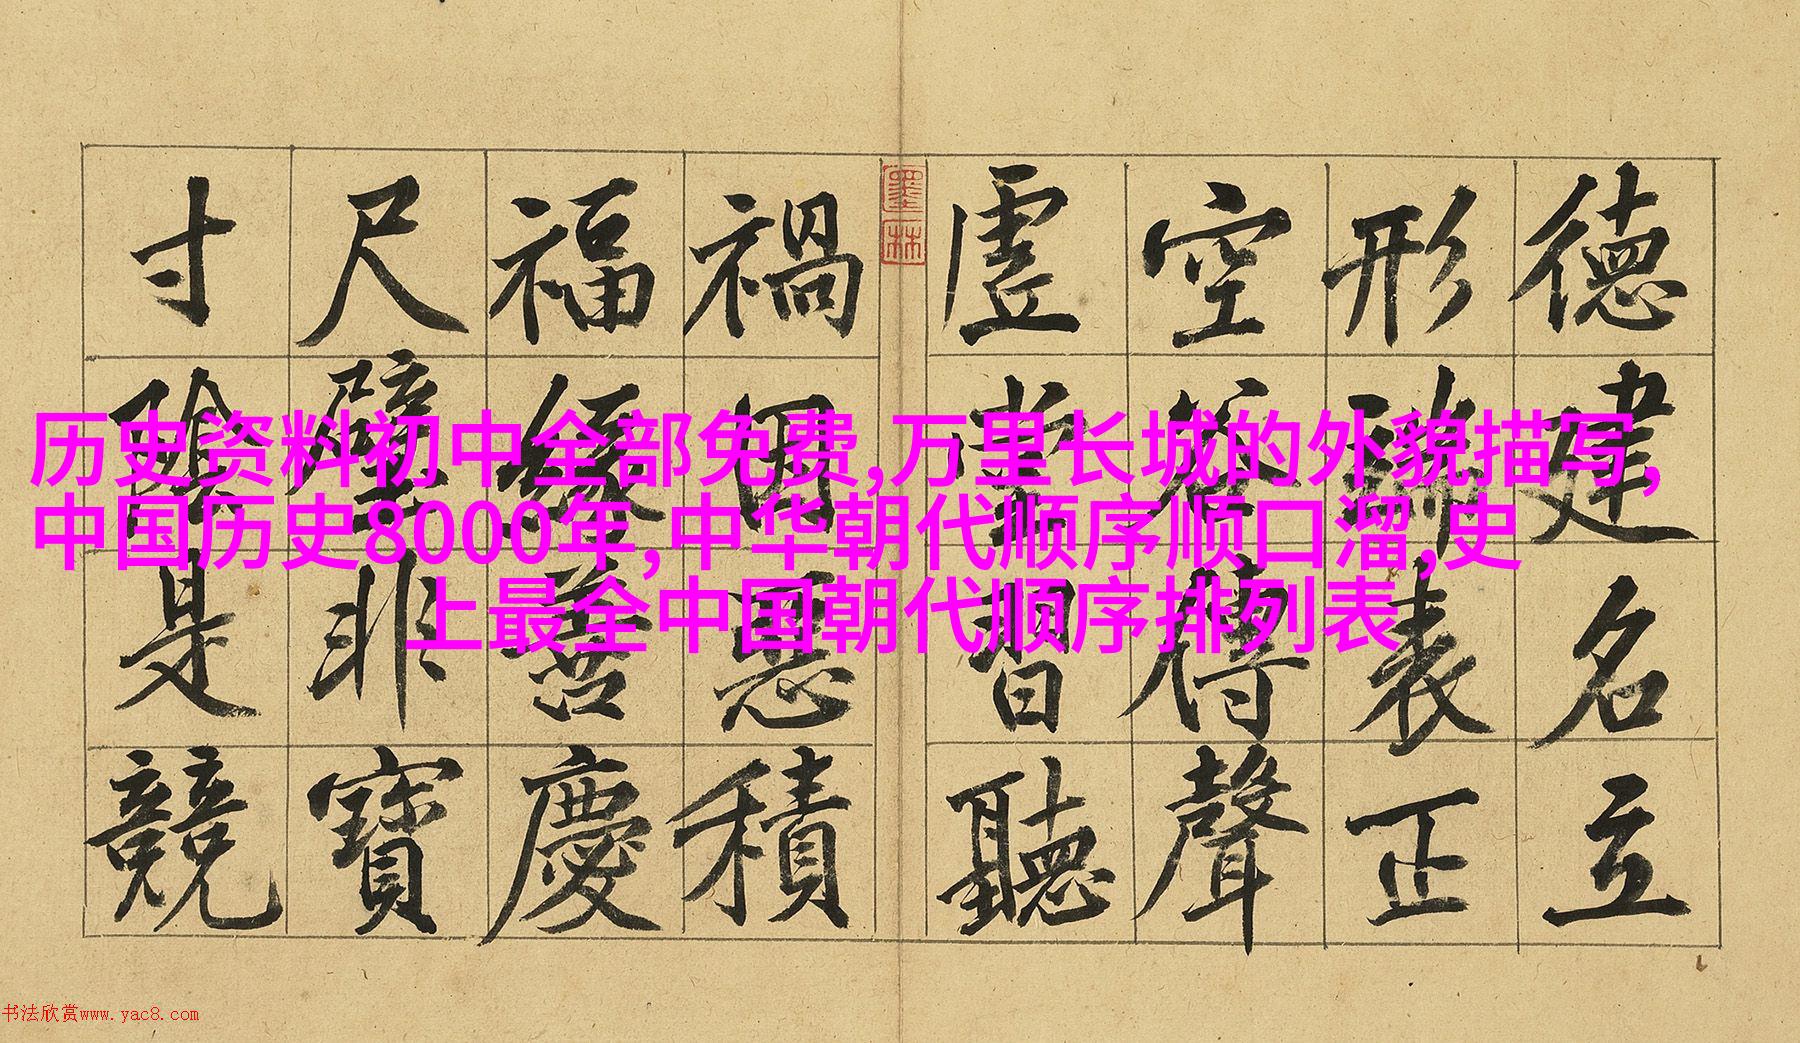 德建名立
形端表正
空谷傳聲
虛堂習聽
禍因惡積
福緣善慶
尺璧非寶
寸陰是競
墨林
历史资料初中全部免费,万里长城的外貌描写,
中国历史8000年,中华朝代顺序顺口溜,史
上最全中国朝代顺序排列表
书法欣赏www.yac8.com